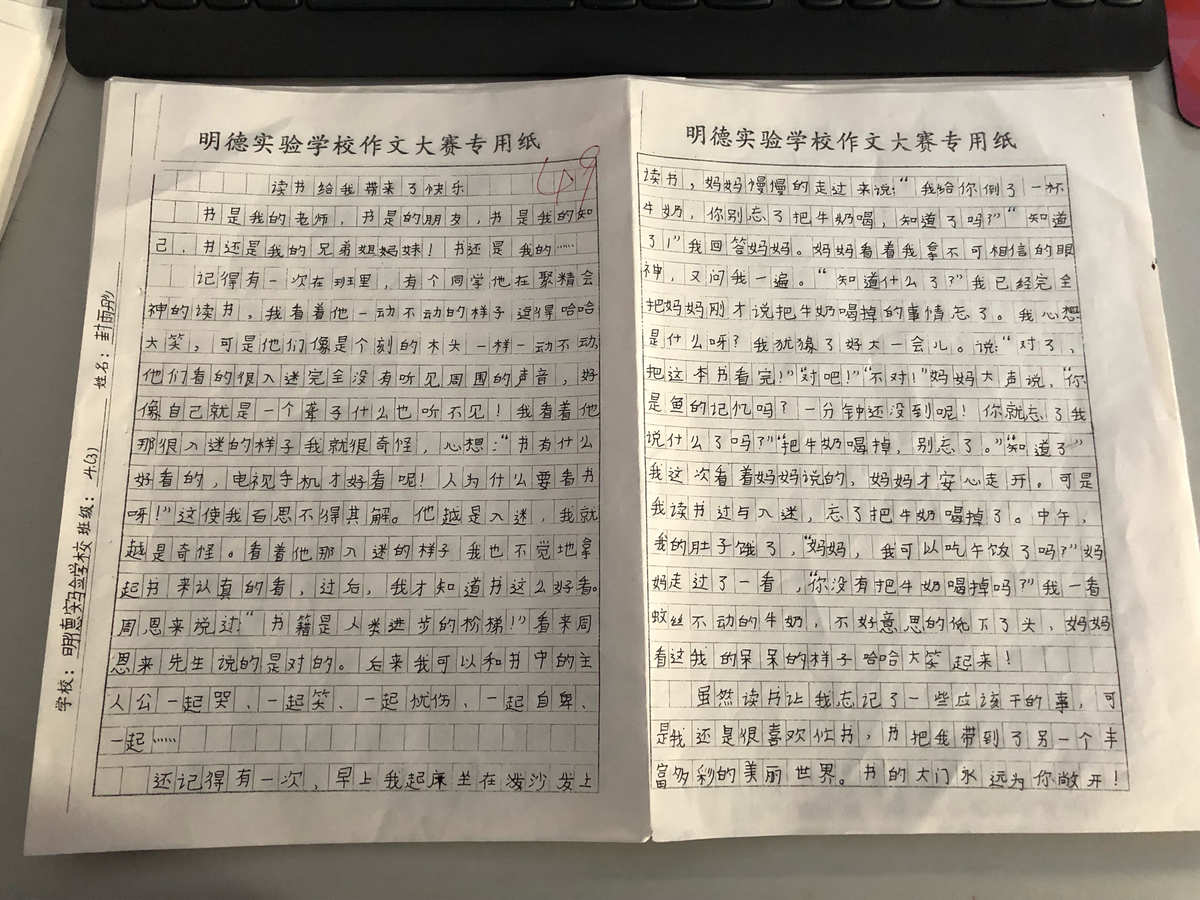 明德实验学校作文大赛专用纸
读书给我带来了快乐
书是我的老师，书是的朋友，书是我的知
己，书还是我的兄弟姐妈妹！书还是我的……
记得有一次在班里，有个同学他在聚精会
神的读书，我看着他一动不动的样子逗得哈哈
大笑，可是他们像是个刻的木头一样一动不动，
他们看的很入迷完全没有听见周围的声音，好
像自己就是一个聋子什么也听不见！我看着他
那很入迷的样子我就很奇怪，心想：“书有什么
好看的，电视手机才好看呢！人为什么要看书
呀！”这使我百思不得其解。他越是入迷，我就
越是奇怪。看着他那入迷的样子我也不觉地拿
起书来认真的看，过后，我才知道书这么好看。
周恩来说过：“书籍是人类进步的阶梯！”看来周
恩来先生说的是对的。后来我可以和书中的主
人公一起哭、一起笑、一起忧伤、一起自卑、
一起……
还记得有一次，早上我起床坐在沙发上
学校：明德实验学校 班级：4(3) 姓名：封雨彤
明德实验学校作文大赛专用纸
读书，妈妈慢慢的走过来说：“我给你倒了一杯
牛奶，你别忘了把牛奶喝，知道了吗？”“知道
了！”我回答妈妈。妈妈看着我拿不可相信的眼
神，又问我一遍。“知道什么了？”我已经完全
把妈妈刚才说把牛奶喝掉的事情忘了。我心想
是什么呀？我犹豫了好大一会儿。说：“对了，
把这本书看完！”“对吧！”“不对！”妈妈大声说，“你
是鱼的记忆吗？一分钟还没到呢！你就忘了我
说什么了吗？”“把牛奶喝掉，别忘了。”“知道了”
我这次看着妈妈说的，妈妈才安心走开。可是
我读书过与入迷，忘了把牛奶喝掉了。中午，
我的肚子饿了，“妈妈，我可以吃午饭了吗？”妈
妈走过了一看，“你没有把牛奶喝掉吗？”我一看
蚊丝不动的牛奶，不好意思的低下了头，妈妈
看这我的呆呆的样子哈哈大笑起来！
虽然读书让我忘记了一些应该干的事，可
是我还是很喜欢书，书把我带到了另一个丰
富多彩的美丽世界。书的大门永远为你敞开！